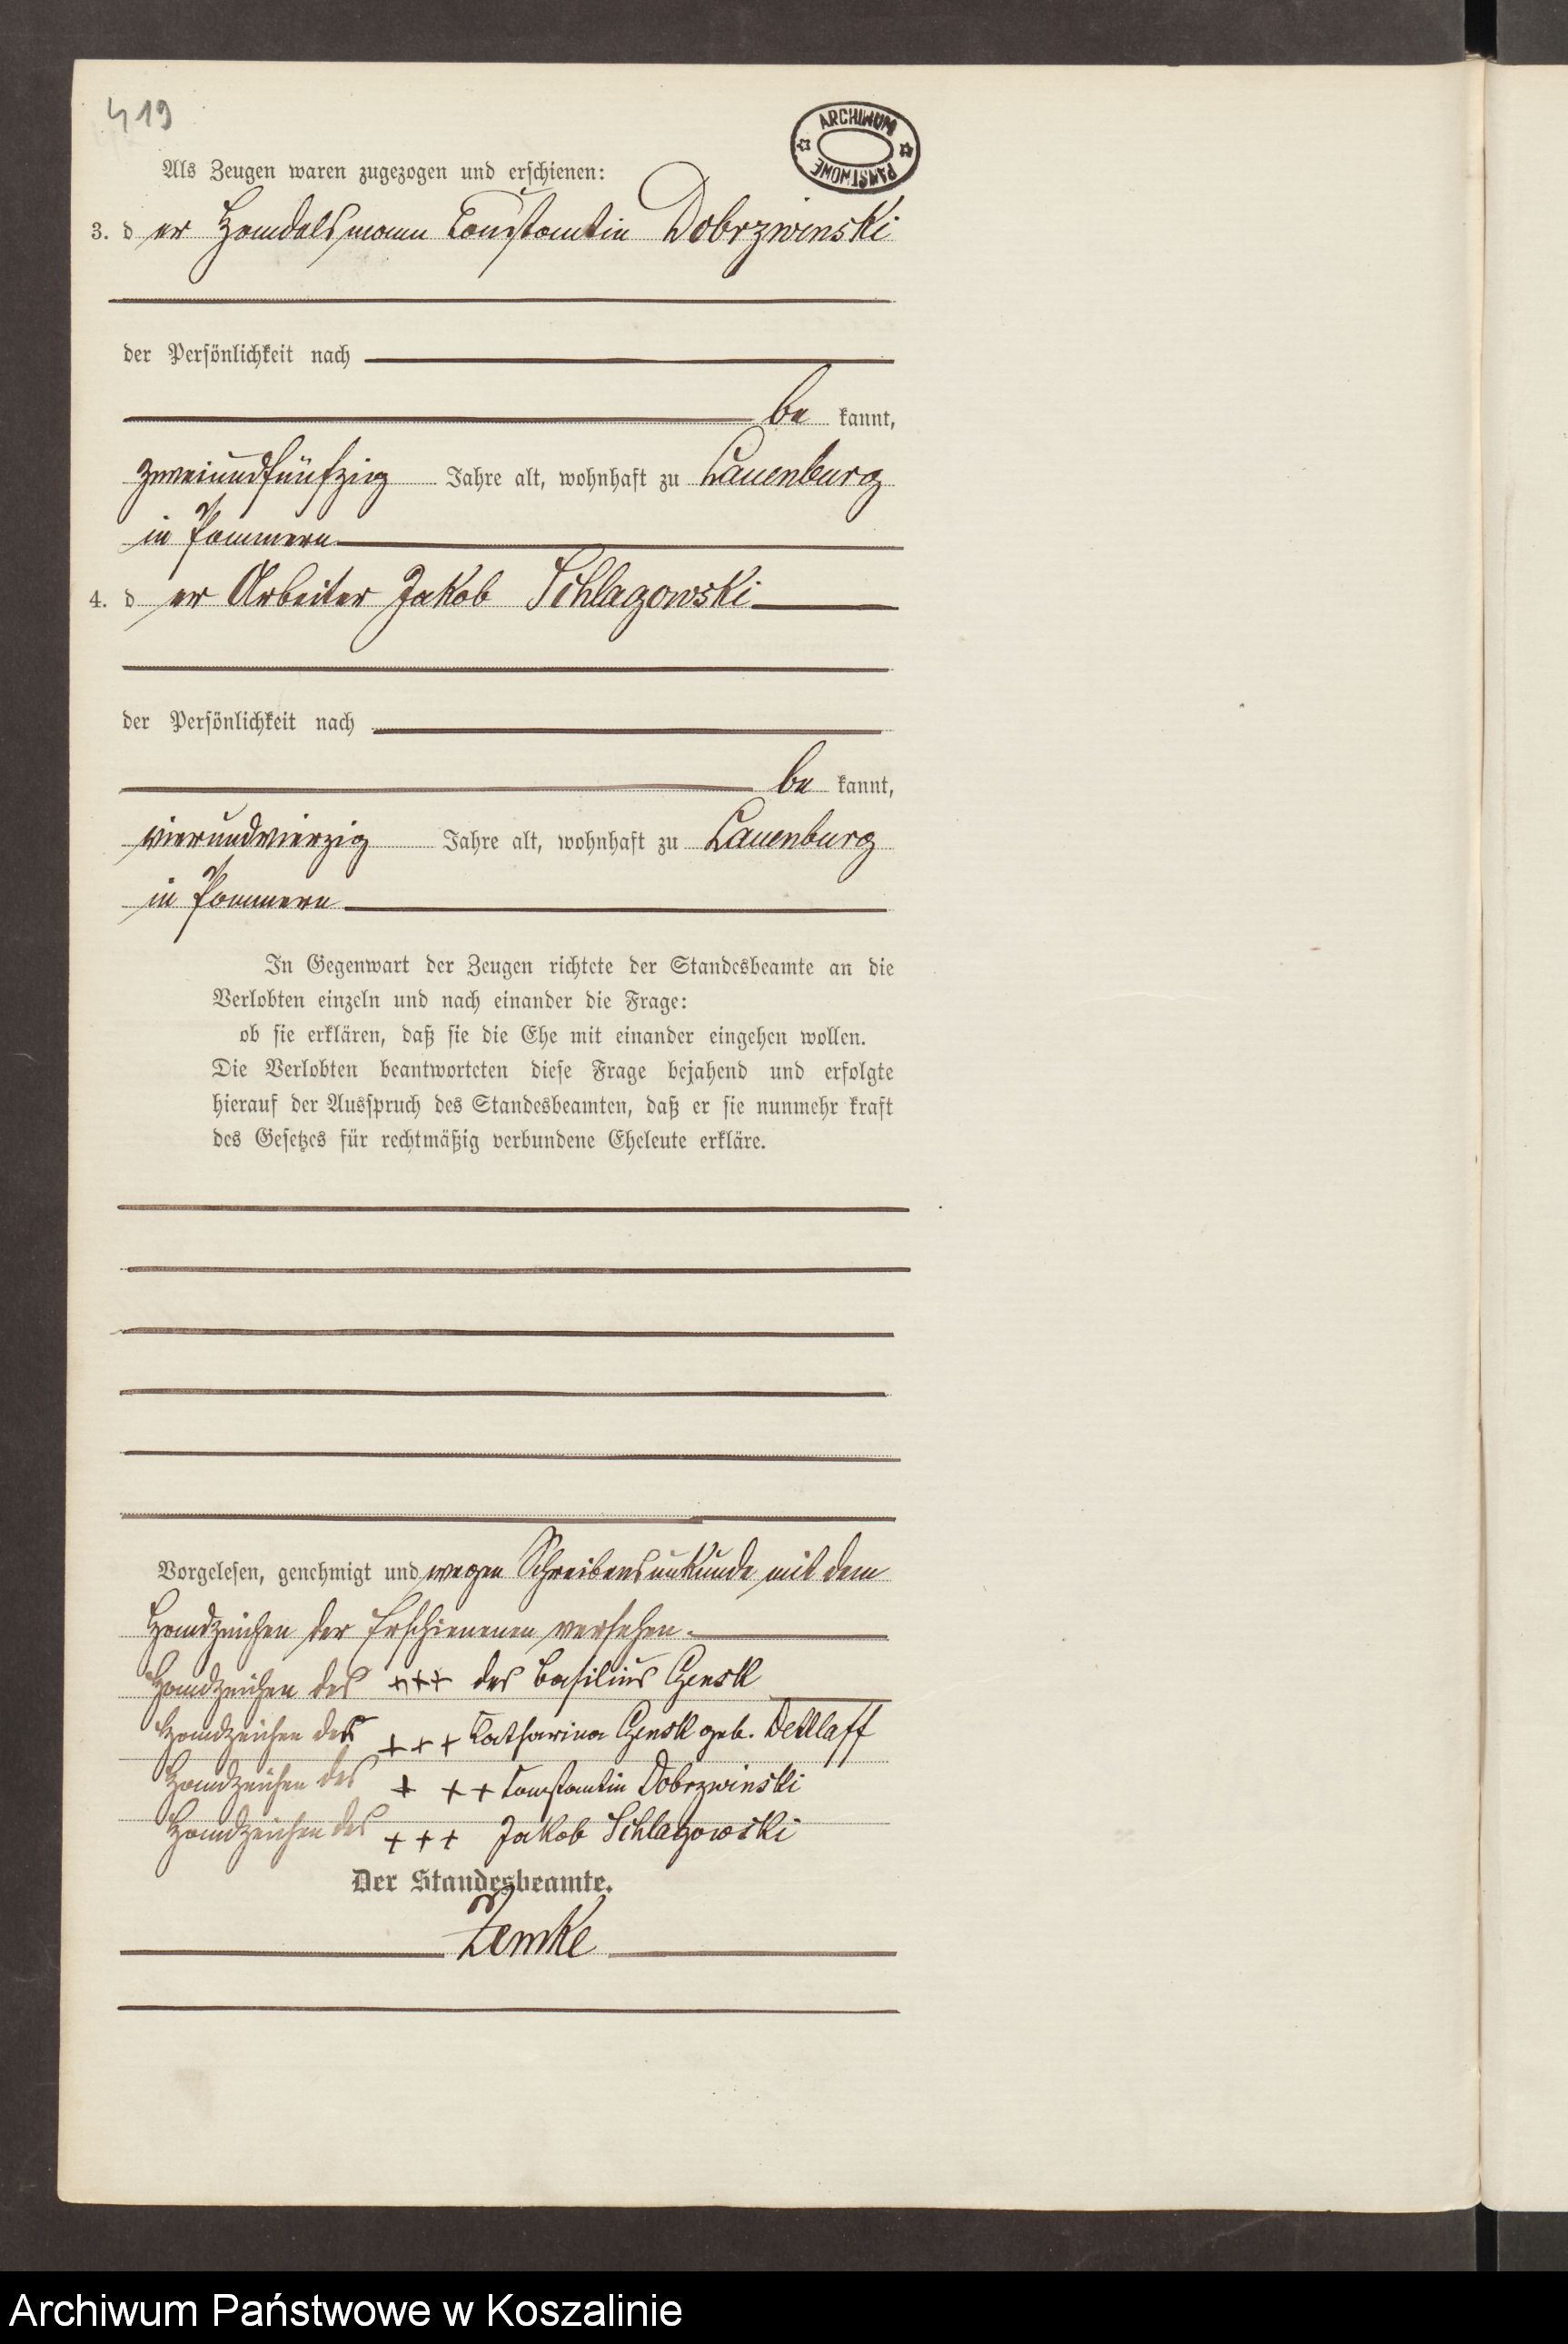 419
ARCHIWUM PAŃSTWOWE
Als Zeugen waren zugezogen und erschienen:
3. d er Handelsmann Constantin Dobrzwinski
der Persönlichkeit nach
be kannt,
zweiundfünfzig Jahre alt, wohnhaft zu Lauenburg
in Pommern
4. d er Arbeiter Jakob Schlagowski
der Persönlichkeit nach
be kannt,
vierundvierzig Jahre alt, wohnhaft zu Lauenburg
in Pommern
In Gegenwart der Zeugen richtete der Standesbeamte an die
Verlobten einzeln und nach einander die Frage:
ob sie erklären, daß sie die Ehe mit einander eingehen wollen.
Die Verlobten beantworteten diese Frage bejahend und erfolgte
hierauf der Ausspruch des Standesbeamten, daß er sie nunmehr kraft
des Gesetzes für rechtmäßig verbundene Eheleute erkläre.
Vorgelesen, genehmigt und wegen Schreibensunkunde mit dem
Handzeichen der Erschienenen versehen.
Handzeichen des +++ des Basilius Czensk
Handzeichen der +++ Katharina Czensk geb. Dettlaff
Handzeichen des + ++ Constantin Dobrzwinski
Handzeichen des +++ Jakob Schlagowski
Der Standesbeamte.
Zemke
Archiwum Państwowe w Koszalinie